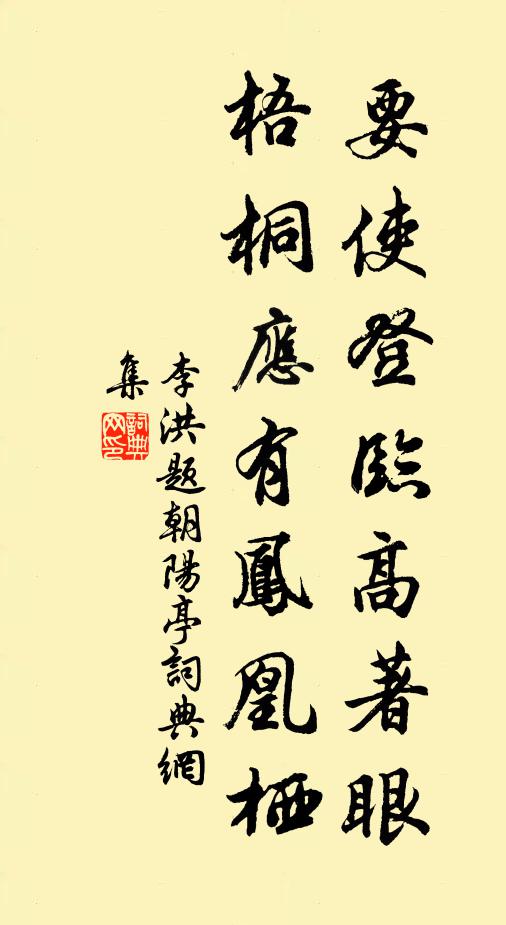 要使登臨高著眼
梧桐應有鳳凰栖
李洪题朝陽亭詞典網
集
詞典網印